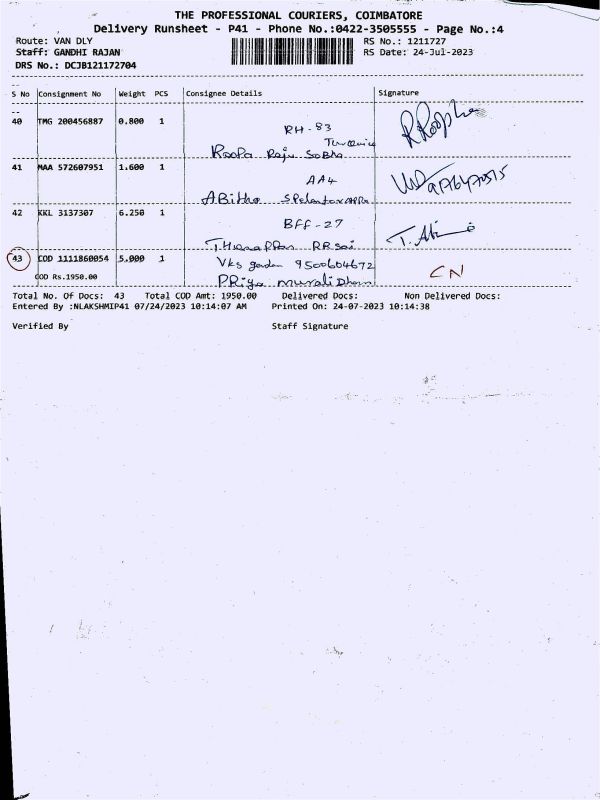 THE PROFESSIONAL COURIERS, COIMBATORE
Delivery Runsheet - P41 - Phone No.:0422-3505555 - Page No.:4
Route: VAN DLY RS No.: 1211727
Staff: GANDHI RAJAN RS Date: 24-Jul-2023
DRS No.: DCJB121172704
S No Consignment No Weight PCS Consignee Details Signature
40 TMG 200456887 0.800 1 RH-83
Roopa Raju Sobha
41 MAA 572607951 1.600 1 AA4
ABitha
42 KKL 3137307 6.250 1 BFF-27
RR Sai T. Abi
43 COD 1111860054 5.000 1 Vks garden 9500604672
COD Rs.1950.00 PRiya muraliDharn CN
Total No. Of Docs: 43 Total COD Amt: 1950.00 Delivered Docs: Non Delivered Docs:
Entered By :NLAKSHMIP41 07/24/2023 10:14:07 AM Printed On: 24-07-2023 10:14:38
Verified By Staff Signature